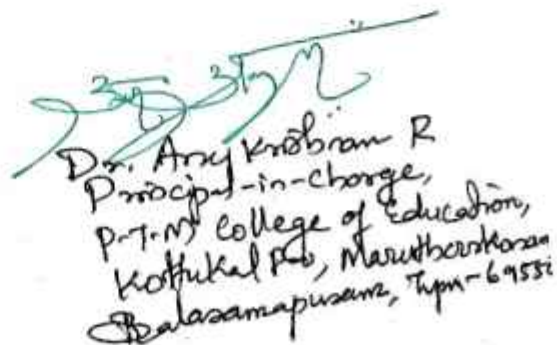 Dr. Any Krishnan R
Principal-in-Charge,
P.T.M College of Education,
Kottukal P.O, Maruthoorkonam
Balaramapuram, Tvpm-